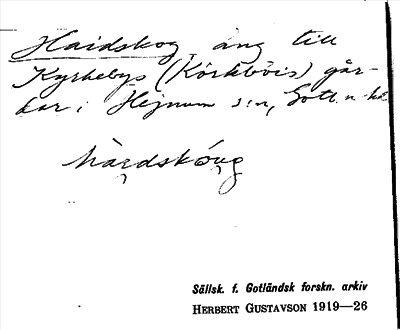 Haidskog, äng till
Kyrkebys (Körkböis) går-
dar i Hejnum s:n, Gotl. n. hd
hàrdskóug
Sällsk. f. Gotländsk forskn. arkiv
HERBERT GUSTAVSON 1919—26